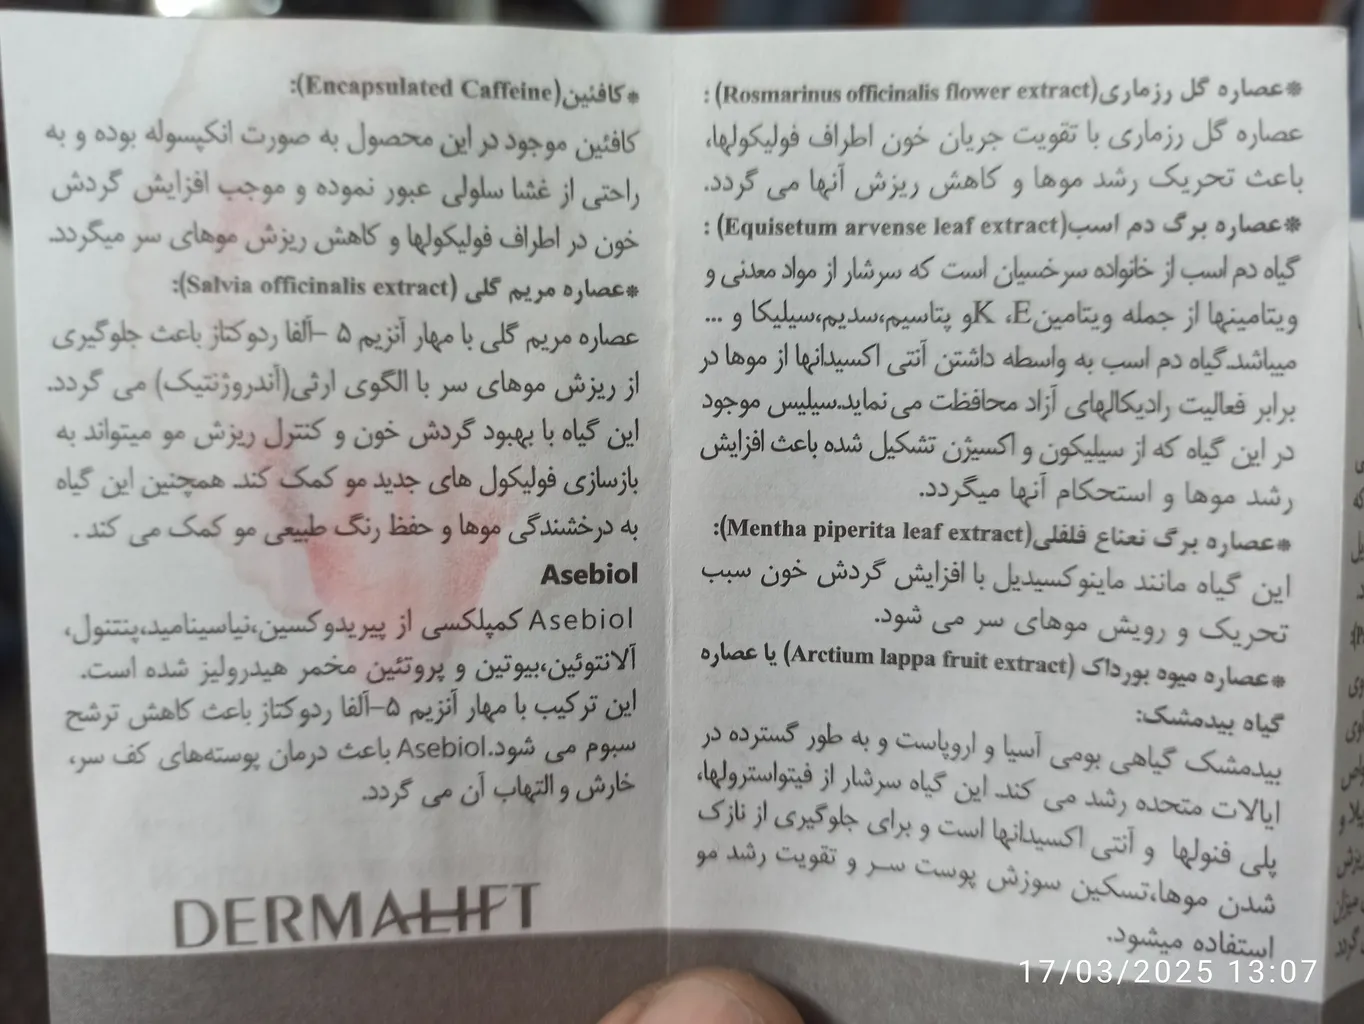 *عصاره گل رزماری(Rosmarinus officinalis flower extract) :
عصاره گل رزماری با تقویت جریان خون اطراف فولیکولها،
باعث تحریک رشد موها و کاهش ریزش آنها می گردد.
*عصاره برگ دم اسب(Equisetum arvense leaf extract) :
گیاه دم اسب از خانواده سرخسیان است که سرشار از مواد معدنی و
ویتامینها از جمله ویتامینE، Kو پتاسیم،سدیم،سیلیکا و ...
میباشد.گیاه دم اسب به واسطه داشتن آنتی اکسیدانها از موها در
برابر فعالیت رادیکالهای آزاد محافظت می نماید.سیلیس موجود
در این گیاه که از سیلیکون و اکسیژن تشکیل شده باعث افزایش
رشد موها و استحکام آنها میگردد.
*عصاره برگ نعناع فلفلی(Mentha piperita leaf extract):
این گیاه مانند ماینوکسیدیل با افزایش گردش خون سبب
تحریک و رویش موهای سر می شود.
*عصاره میوه بورداک (Arctium lappa fruit extract) یا عصاره
گیاه بیدمشک:
بیدمشک گیاهی بومی آسیا و اروپاست و به طور گسترده در
ایالات متحده رشد می کند. این گیاه سرشار از فیتواسترولها،
پلی فنولها و آنتی اکسیدانها است و برای جلوگیری از نازک
شدن موها،تسکین سوزش پوست سر و تقویت رشد مو
استفاده میشود.
*کافئین(Encapsulated Caffeine):
کافئین موجود در این محصول به صورت انکپسوله بوده و به
راحتی از غشا سلولی عبور نموده و موجب افزایش گردش
خون در اطراف فولیکولها و کاهش ریزش موهای سر میگردد.
*عصاره مریم گلی (Salvia officinalis extract):
عصاره مریم گلی با مهار آنزیم ۵ –آلفا ردوکتاز باعث جلوگیری
از ریزش موهای سر با الگوی ارثی(آندروژنتیک) می گردد.
این گیاه با بهبود گردش خون و کنترل ریزش مو میتواند به
بازسازی فولیکول های جدید مو کمک کند. همچنین این گیاه
به درخشندگی موها و حفظ رنگ طبیعی مو کمک می کند .
Asebiol
Asebiol کمپلکسی از پیریدوکسین،نیاسینامید،پنتنول،
آلانتوئین،بیوتین و پروتئین مخمر هیدرولیز شده است.
این ترکیب با مهار آنزیم ۵–آلفا ردوکتاز باعث کاهش ترشح
سبوم می شود.Asebiol باعث درمان پوسته‌های کف سر،
خارش و التهاب آن می گردد.
DERMALIFT
17/03/2025 13:07